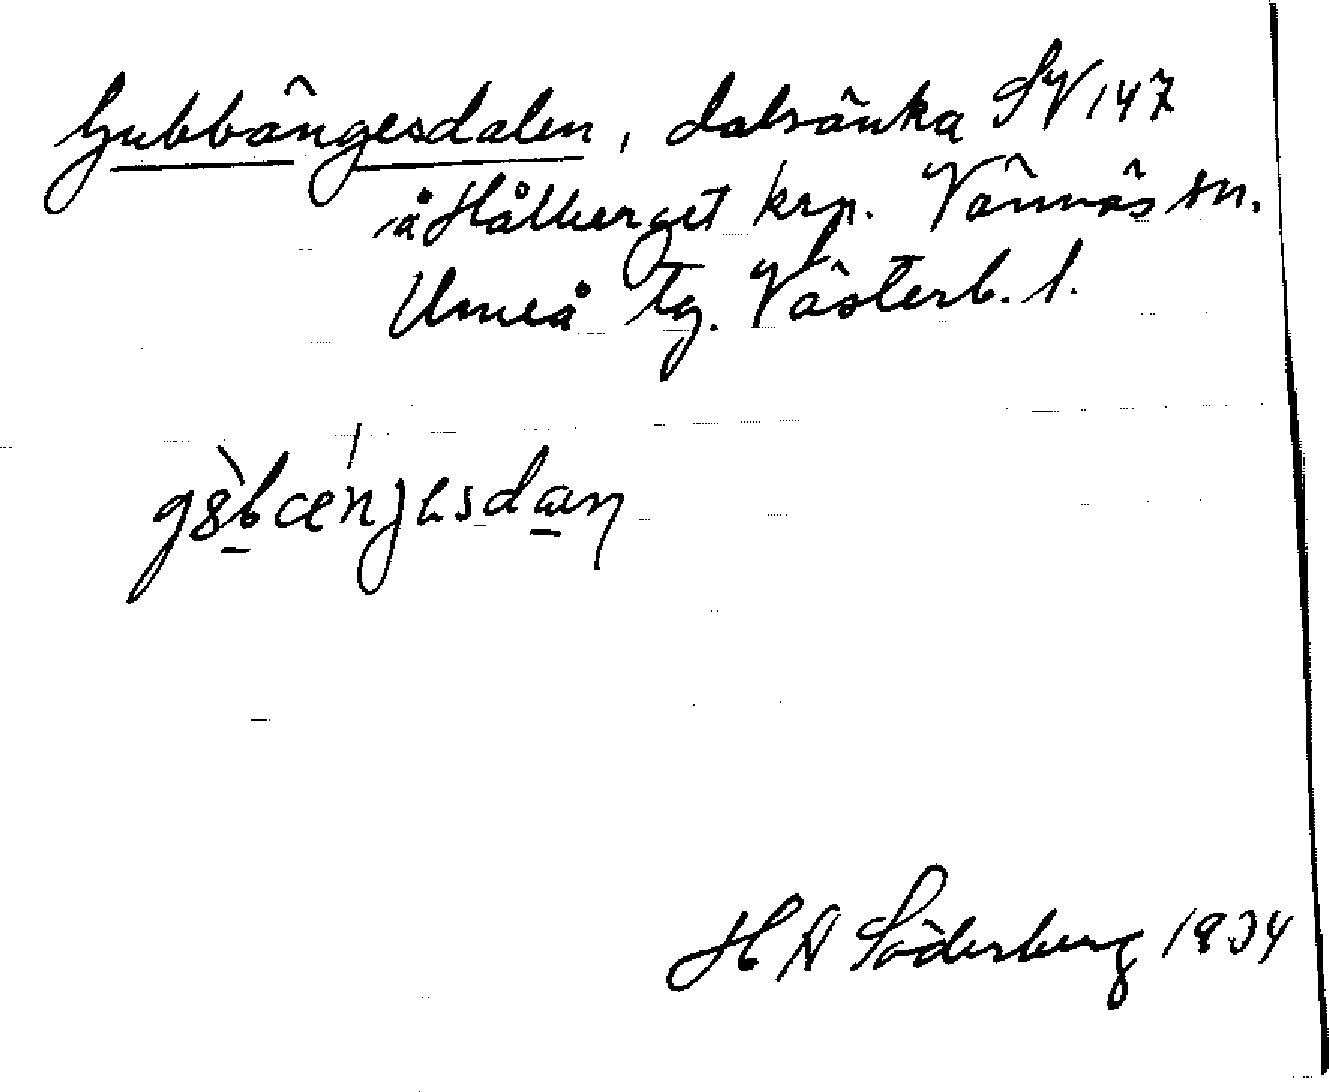 Gubbängesdalen, dalsänka SV 147
å Hålberget krp. Vännäs sn.
Umeå tg. Västerb. l.
H A Söderberg 1934